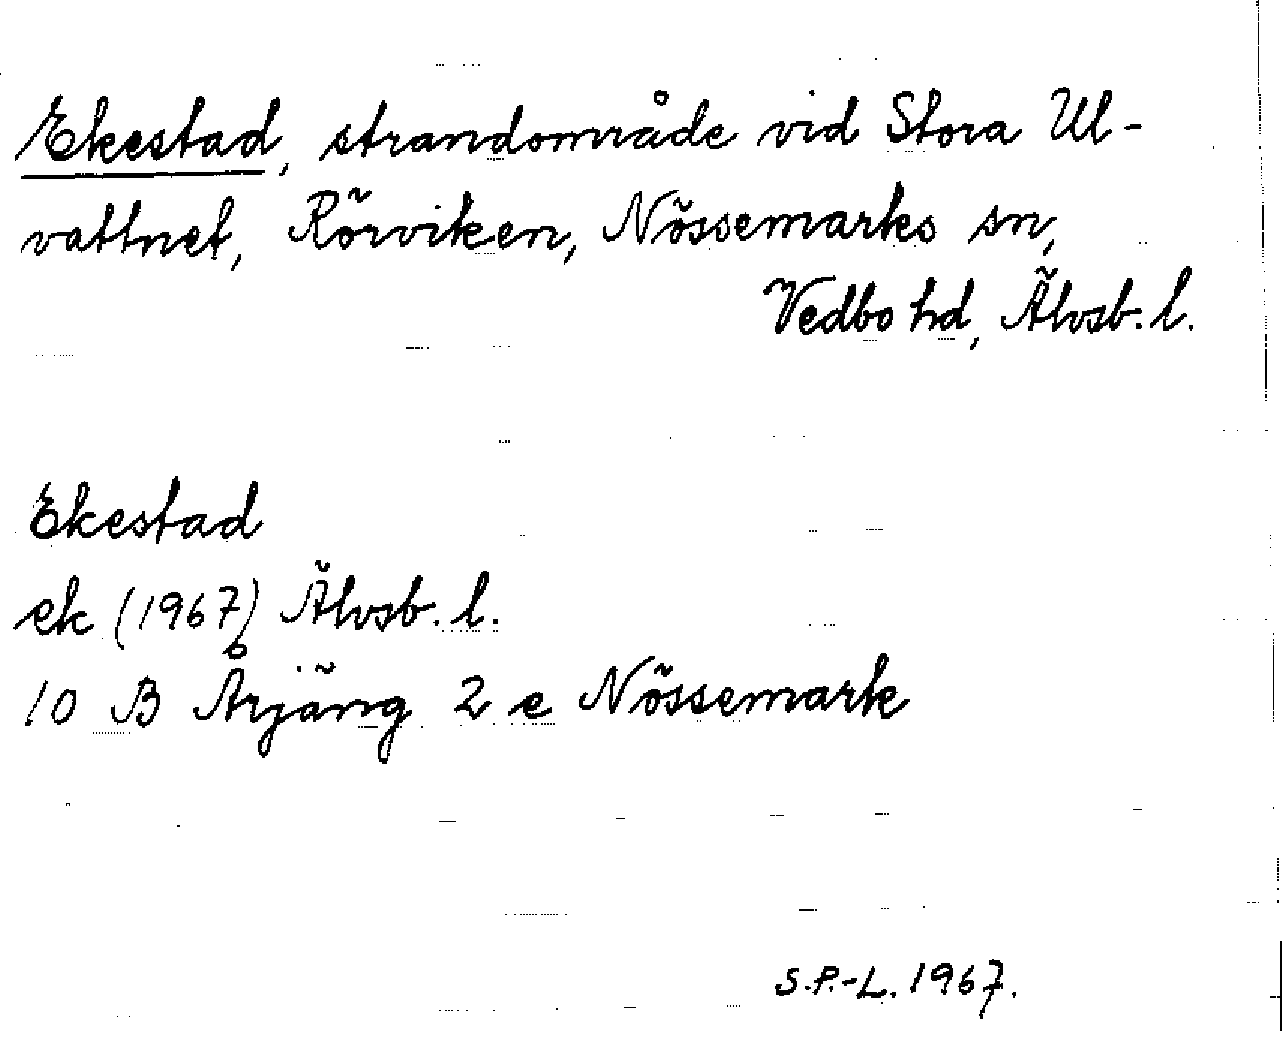 Ekestad, strandområde vid Stora Ul-
vattnet, Rörviken, Nössemarks sn,
Vedbo hd, Älvsb. l.
Ekestad
ek (1967) Älvsb. l.
10 B Årjäng 2 e Nössemark
S.P.-L. 1967.